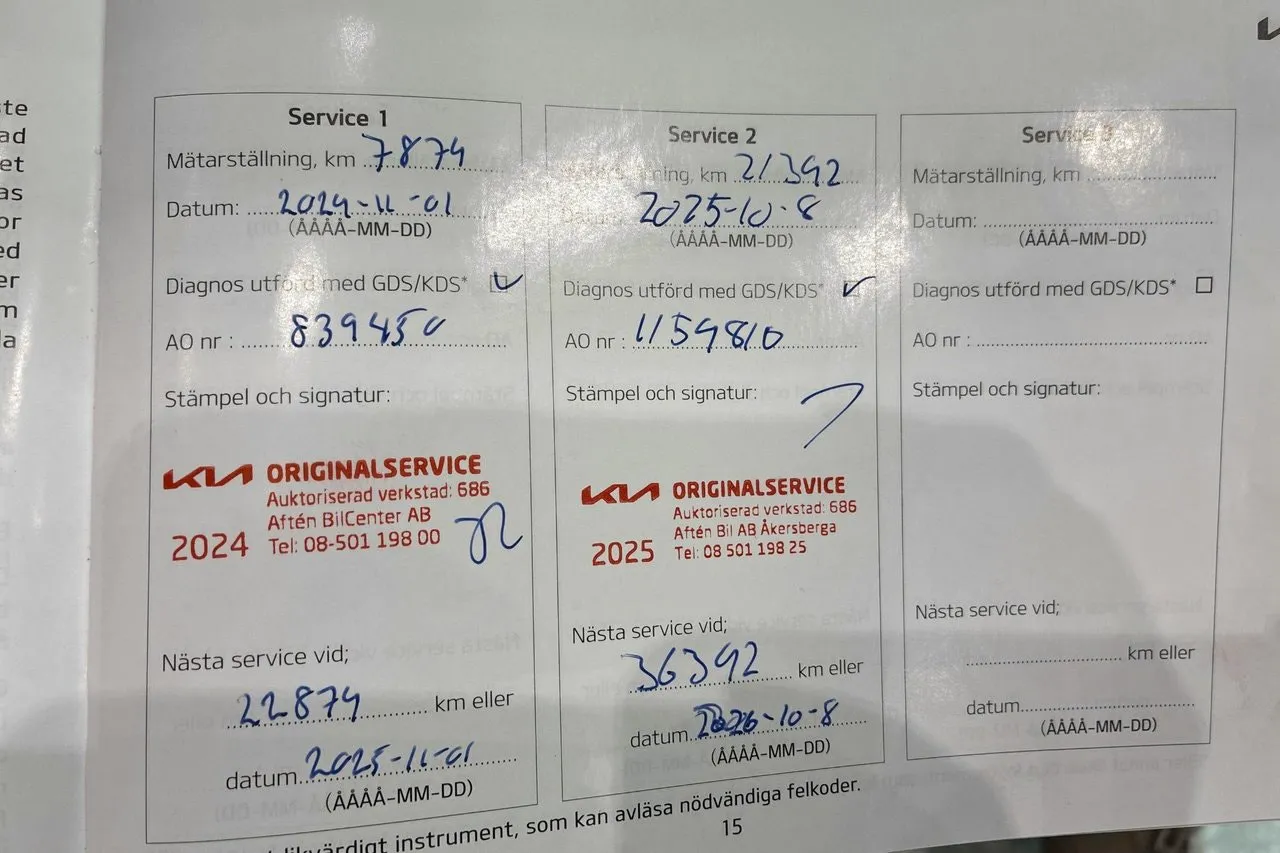 ste
ad
et
as
or
ed
er
m
la
Service 1
Mätarställning, km 7874
Datum: 2024-11-01
(ÅÅÅÅ-MM-DD)
Diagnos utförd med GDS/KDS*
AO nr : 839450
Stämpel och signatur:
KIA ORIGINALSERVICE
Auktoriserad verkstad: 686
Aftén BilCenter AB
2024 Tel: 08-501 198 00
Nästa service vid;
22874 km eller
datum 2025-11-01
(ÅÅÅÅ-MM-DD)
Service 2
km 21392
2025-10-8
(ÅÅÅÅ-MM-DD)
Diagnos utförd med GDS/KDS*
AO nr : 1159810
Stämpel och signatur:
KIA ORIGINALSERVICE
Auktoriserad verkstad: 686
Aftén Bil AB Åkersberga
2025 Tel: 08 501 198 25
Nästa service vid;
36392 km eller
datum 2026-10-8
(ÅÅÅÅ-MM-DD)
Service 3
Mätarställning, km
Datum:
(ÅÅÅÅ-MM-DD)
Diagnos utförd med GDS/KDS*
AO nr :
Stämpel och signatur:
Nästa service vid;
km eller
datum
(ÅÅÅÅ-MM-DD)
instrument, som kan avläsa nödvändiga felkoder.
15